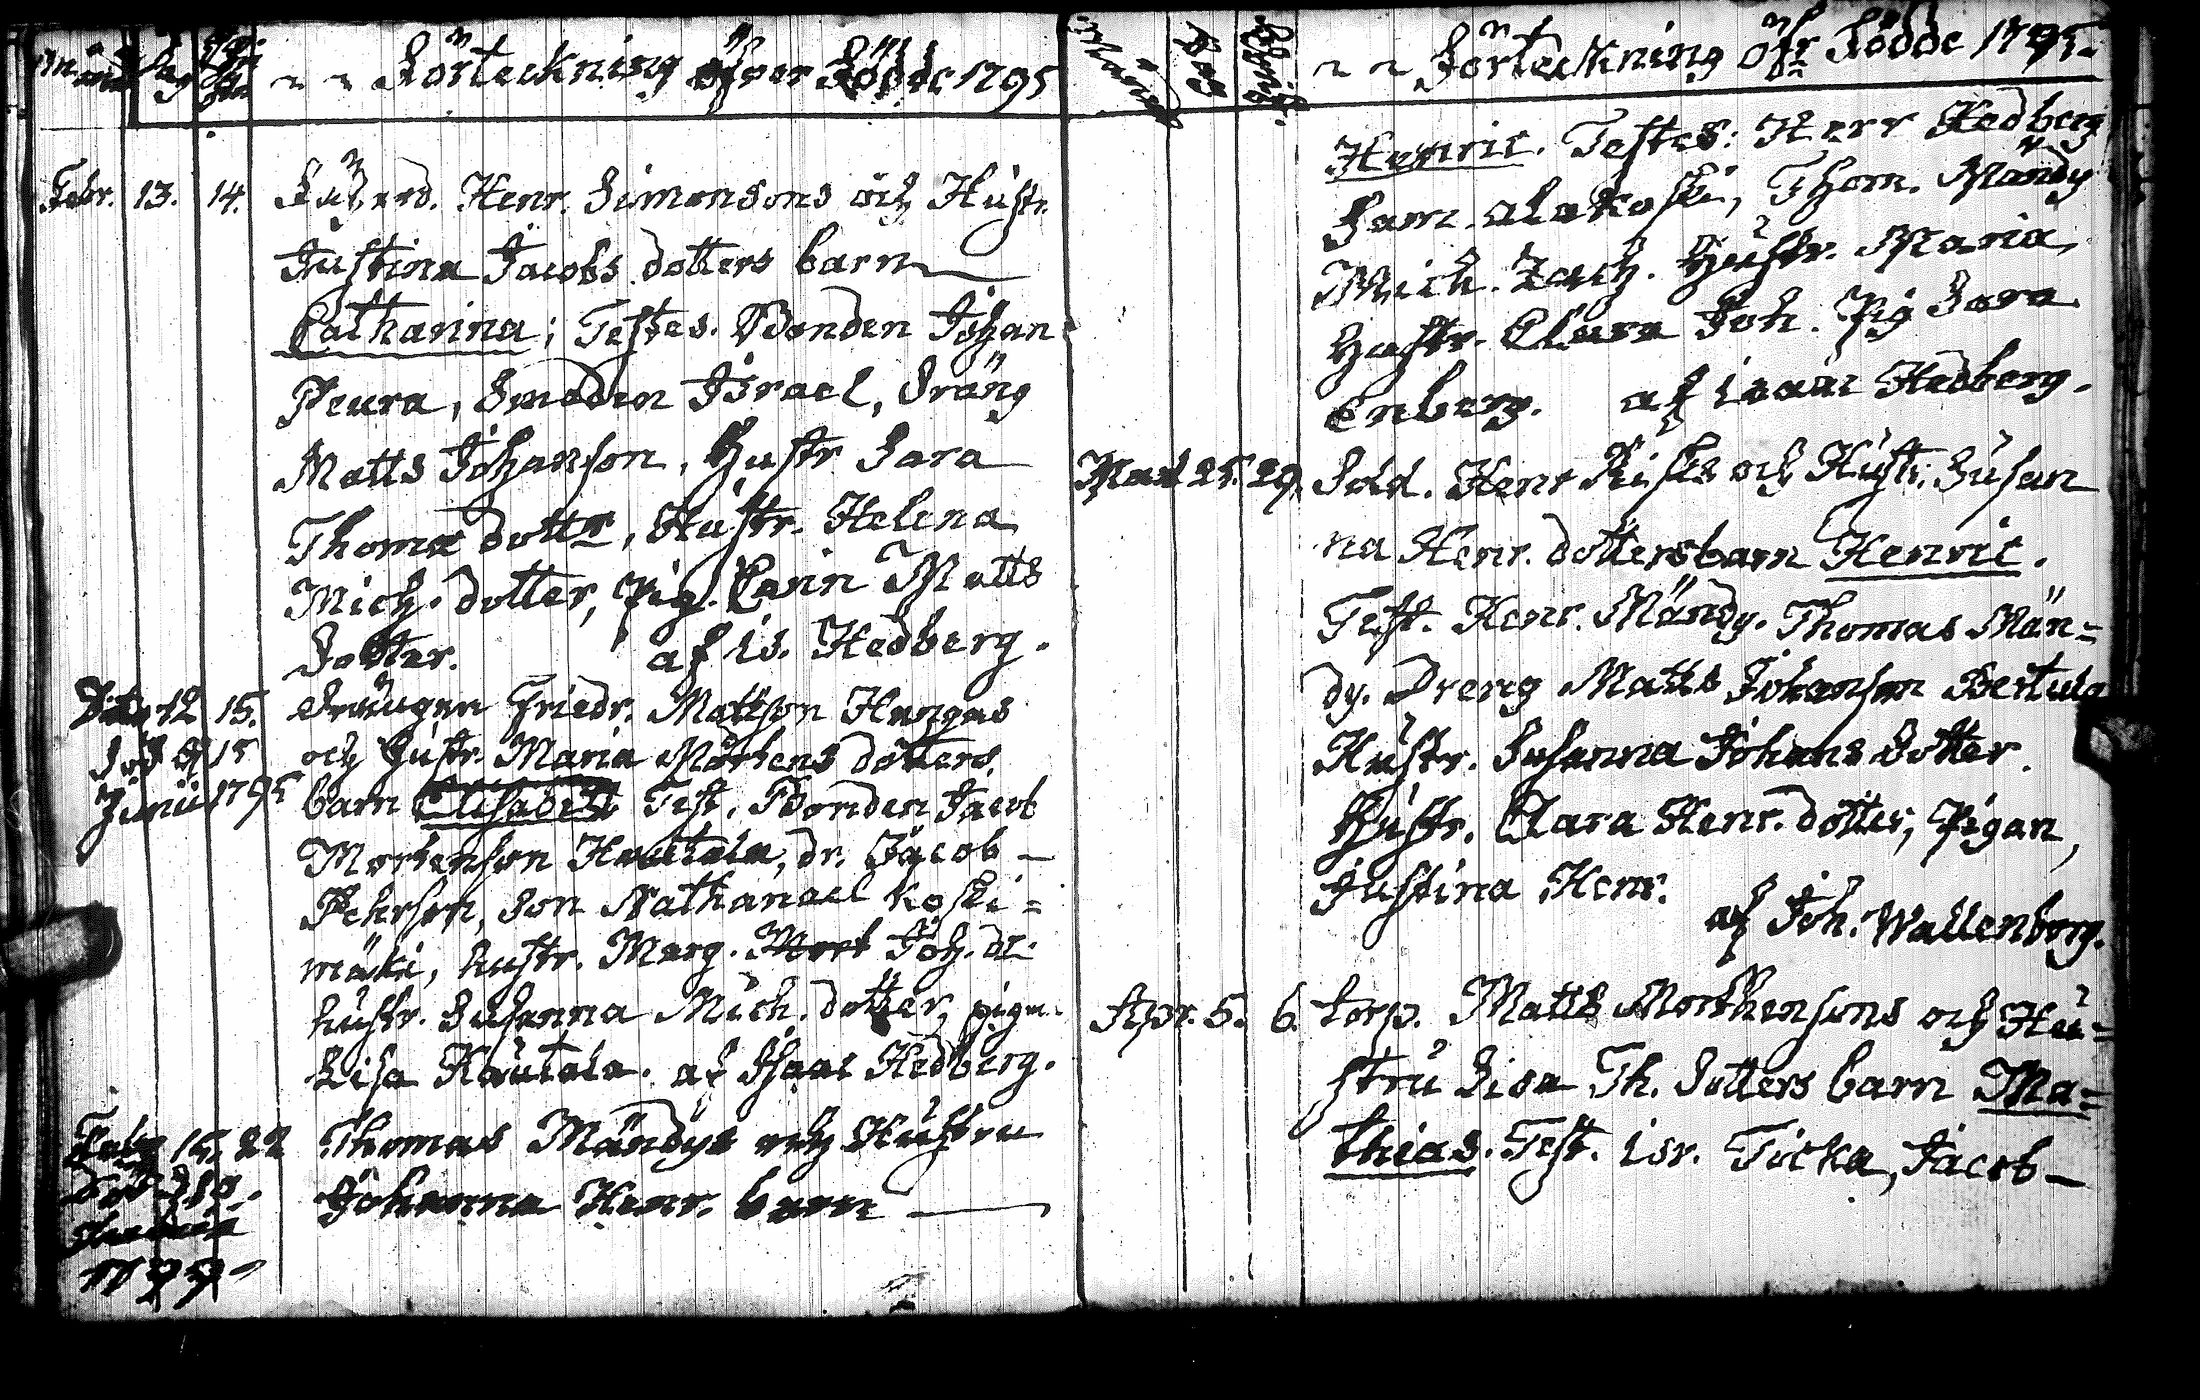 Månad Dag Chri
~ ~ Förteckning öfver Födde 1795
Febr. 13. 14. Henr. Simonsons och Hustr.
Justina Jacobs dotters barn
Catharina; Testes. Bonden Johan
Peura, Smeden Israel, Dräng
Matts Johanson, Hustr Sara
Thoma dottr, Hustr. Helena
Mich. dotter, Pig. Carin Matts
Dotter. af Is. Hedberg.
12 15. Friedr. Mattson Hangas
och Hustr. Maria Mårtens dotters
Junii 1795 barn Elisabeth Test. Bonden Jacob
Mortenson Hautala, dr. Jacob
Pehrson, son Nathanael Koski=
mäki, hustr. Marg. Mort Joh. dr.
hustr. Susanna Mich. dotter, pigan
Lisa Hautala. af Isaac Hedberg.
Febr 15. 22 Thomas Mändys och Hustru
Johanna Henr. barn
Månad Dag Christ.
~ ~ Förteckning öfr Födde 1795.
Henric. Testes: Herr Hedberg
Sam. Alakoski, Thom. Mändy
Mich. Zach. Hustr. Maria,
Hustr. Clara Joh. Pig Sara
Enberg. af Isaac Hedberg.
Mart 25. 29. Sold. Henr Risks och Hustr. Susan
na Henr. dotters barn Henric.
Test. Henr. Mändy. Thomas Män=
dy. Dreng Matts Johanson Bertula
Hustr. Susanna Johans Dotter.
Hustr. Clara Henr. dotter, Pigan,
Justina Henr.
af Joh. Wallenberg.
Apr. 5. 6. torp. Matts Morthensons och Hu=
stru Lisa Th. Dotters barn Ma=
thias. Test. Isr. Ticka, Jacob